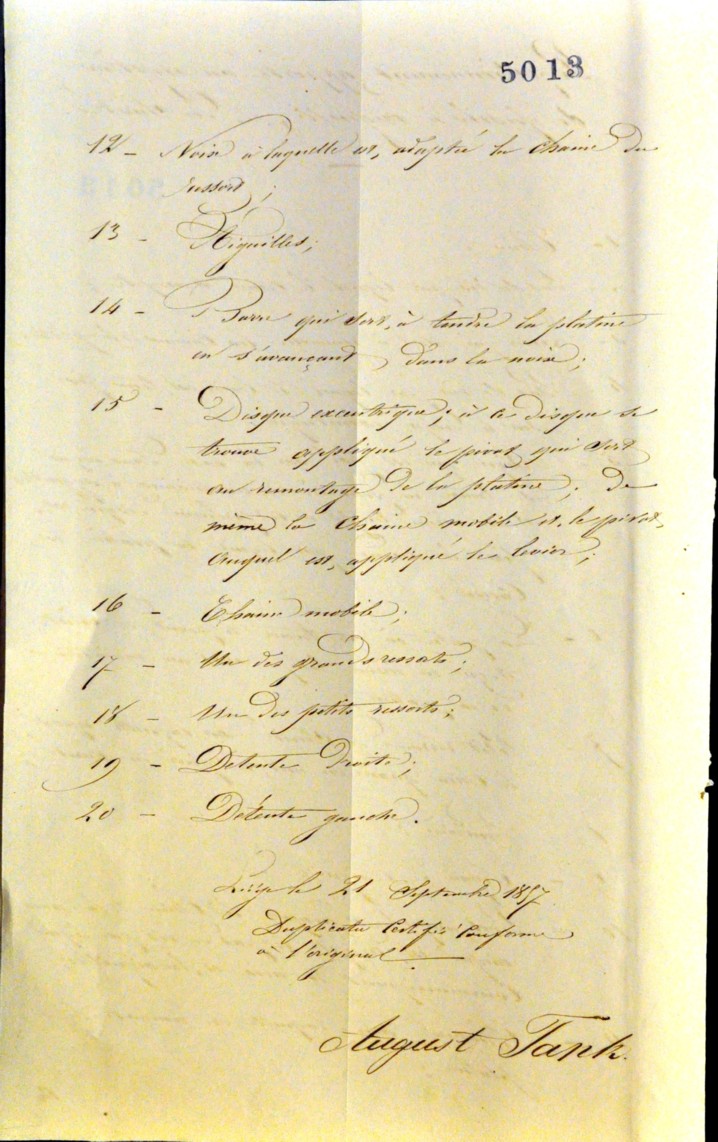 5013
12 - Noix à laquelle est, adaptée la chaine du
ressort;
13 - Aiguilles;
14 - Barre qui sert, à tendre la platine
en s'avançant, dans la noix;
15 - Disque excentrique; à ce disque se
trouve appliqué le pivot qui sert
au remontage de la platine; de
même la chaine mobile et le pivot,
auquel est, appliqué le levier;
16 - Chaine mobile;
17 - Un des grands ressorts;
18 - Un des petits ressorts;
19 - Detente droite;
20 - Détente gauche.
Liége le 21 Septembre 1857
Duplicata Certifié Conforme
à l'original
August Tank.